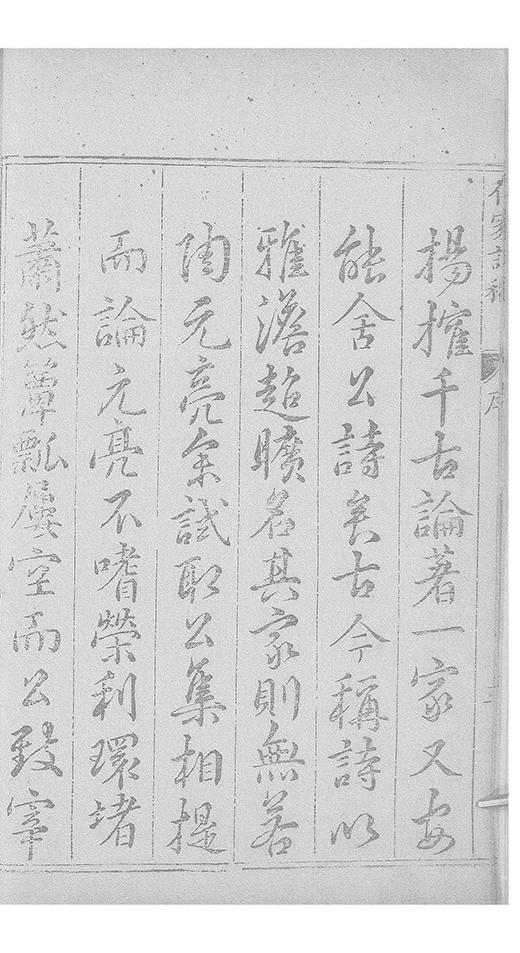 揚搉千古論著一家又安
能舍公詩矣古今稱詩以
雅澹超曠名其家則無若
陶元亮余試取公集相提
而論元亮不嗜榮利環堵
蕭然簞瓢屢空而公致宰